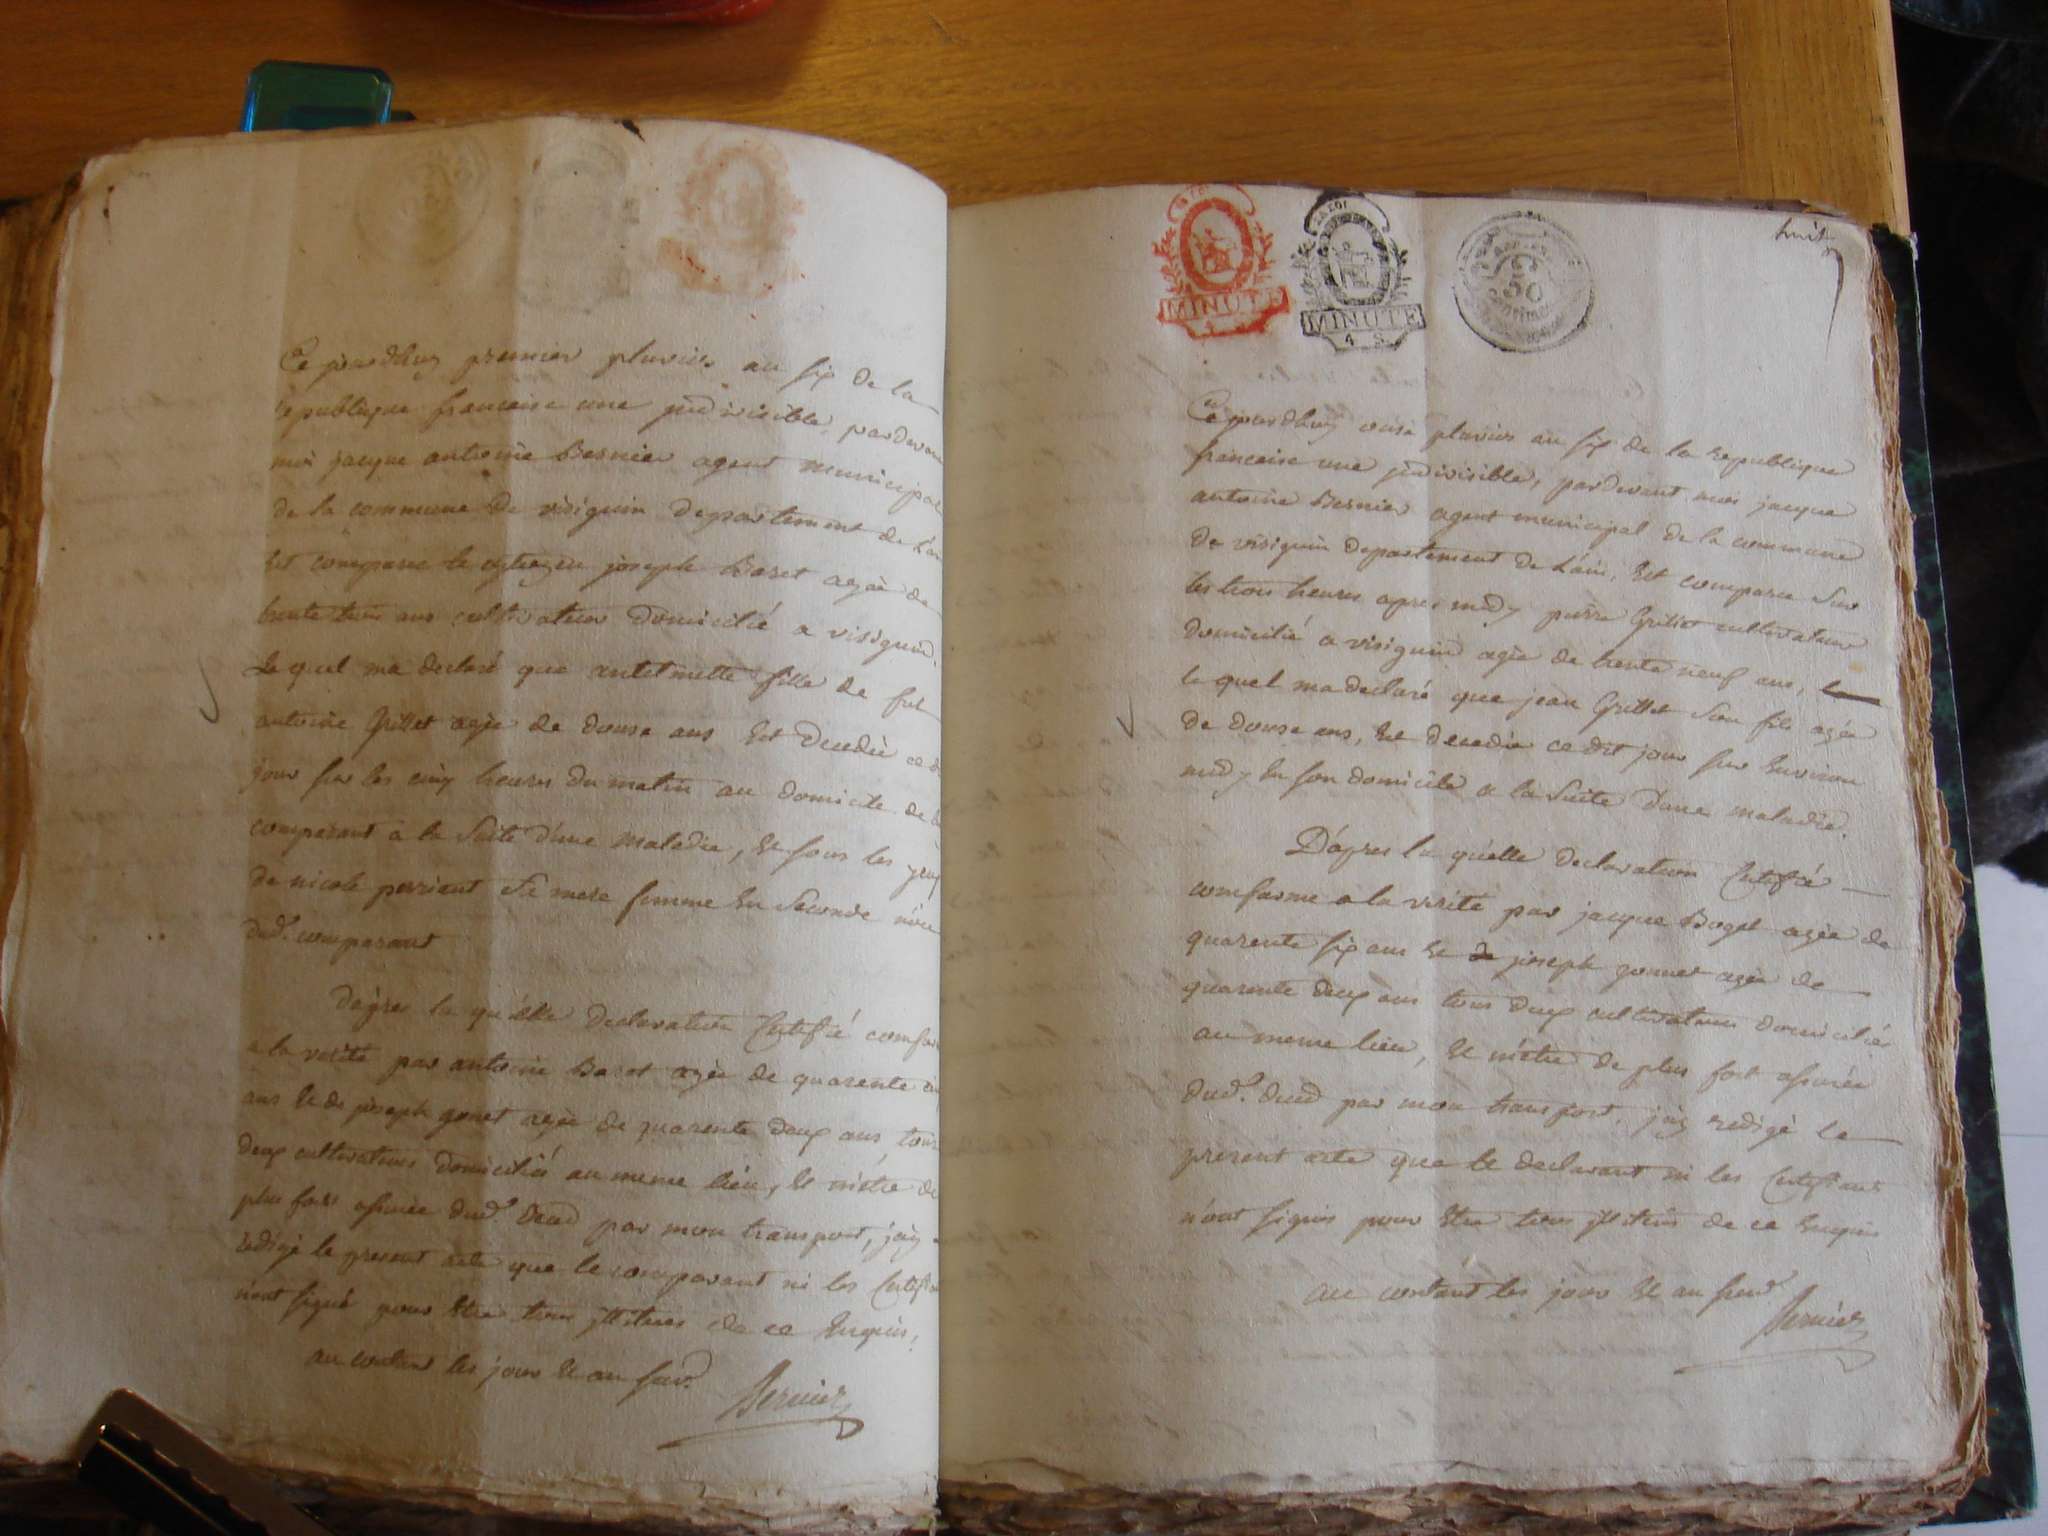 Ce jourdhuy premier pluvios an six de la
republique francaise une indivisible, pardevant
moi jacque antoine Bernier agent municipal
de la commune de visignin departement de L'ain
Est comparu le cytoyen joseph Baret agée de
trente trois ans cultivateur domicilié a visignin.
Le quel ma declaré que antelmette fille de fut
antoine Grillet agée de douse ans Est Decedée ce
jour sur les cinq heures du matin au domicile de
comparant a la Suite d'une maladie, Et sous les yeux
de nicole periant Sa mere femme En Seconde nôce
dud. comparant
D'apres la qu'elle declaration Certifié
a la verité par antoine Baret agée de quarente
ans Et de joseph gonet agée de quarente deux ans, tous
deux cultivateurs domicilié au meme lieu, Et m'etre de
plus fort assurée dud. deced par mon transport, j'ay
redigé le present acte que le comparant ni les
n'ont signé pour Etre tous illitérés de ce Enquis,
au contant les jour Et an susd.
Bernier
huit
MINUTE
LA LOI
MINUTE
4 S
50
centimes
Ce jourdhuy onse pluvios an six de la republique
francaise une indivisible, pardevant moi jacque
antoine Bernier agent municipal de la commune
de visignin departement de L'ain, Est comparu Sur
les trois heures apres midy pierre Grillet cultivateur
domicilié a visignin agée de trente neuf ans,
le quel ma declaré que jean Grillet Son fils agée
de douse ans, Est decedée ce dit jour sur Environ
midy En son domicile a la Suite d'une maladie.
D'apres la qu'elle declaration Certifié
comforme a la verité par jacque Boget agée de
quarente six ans Et de joseph gonnet agée de
quarente deux ans tous deux cultivateurs domiciliés
au meme lieu, Et m'etre de plus fort assurée
dud. deced par mon transport, j'ay redigé le
present acte que le declarant ni les Certifiant
n'ont signés pour Etre tous illiterés de ce Enquis
au contant les jour Et an susd.
Bernier